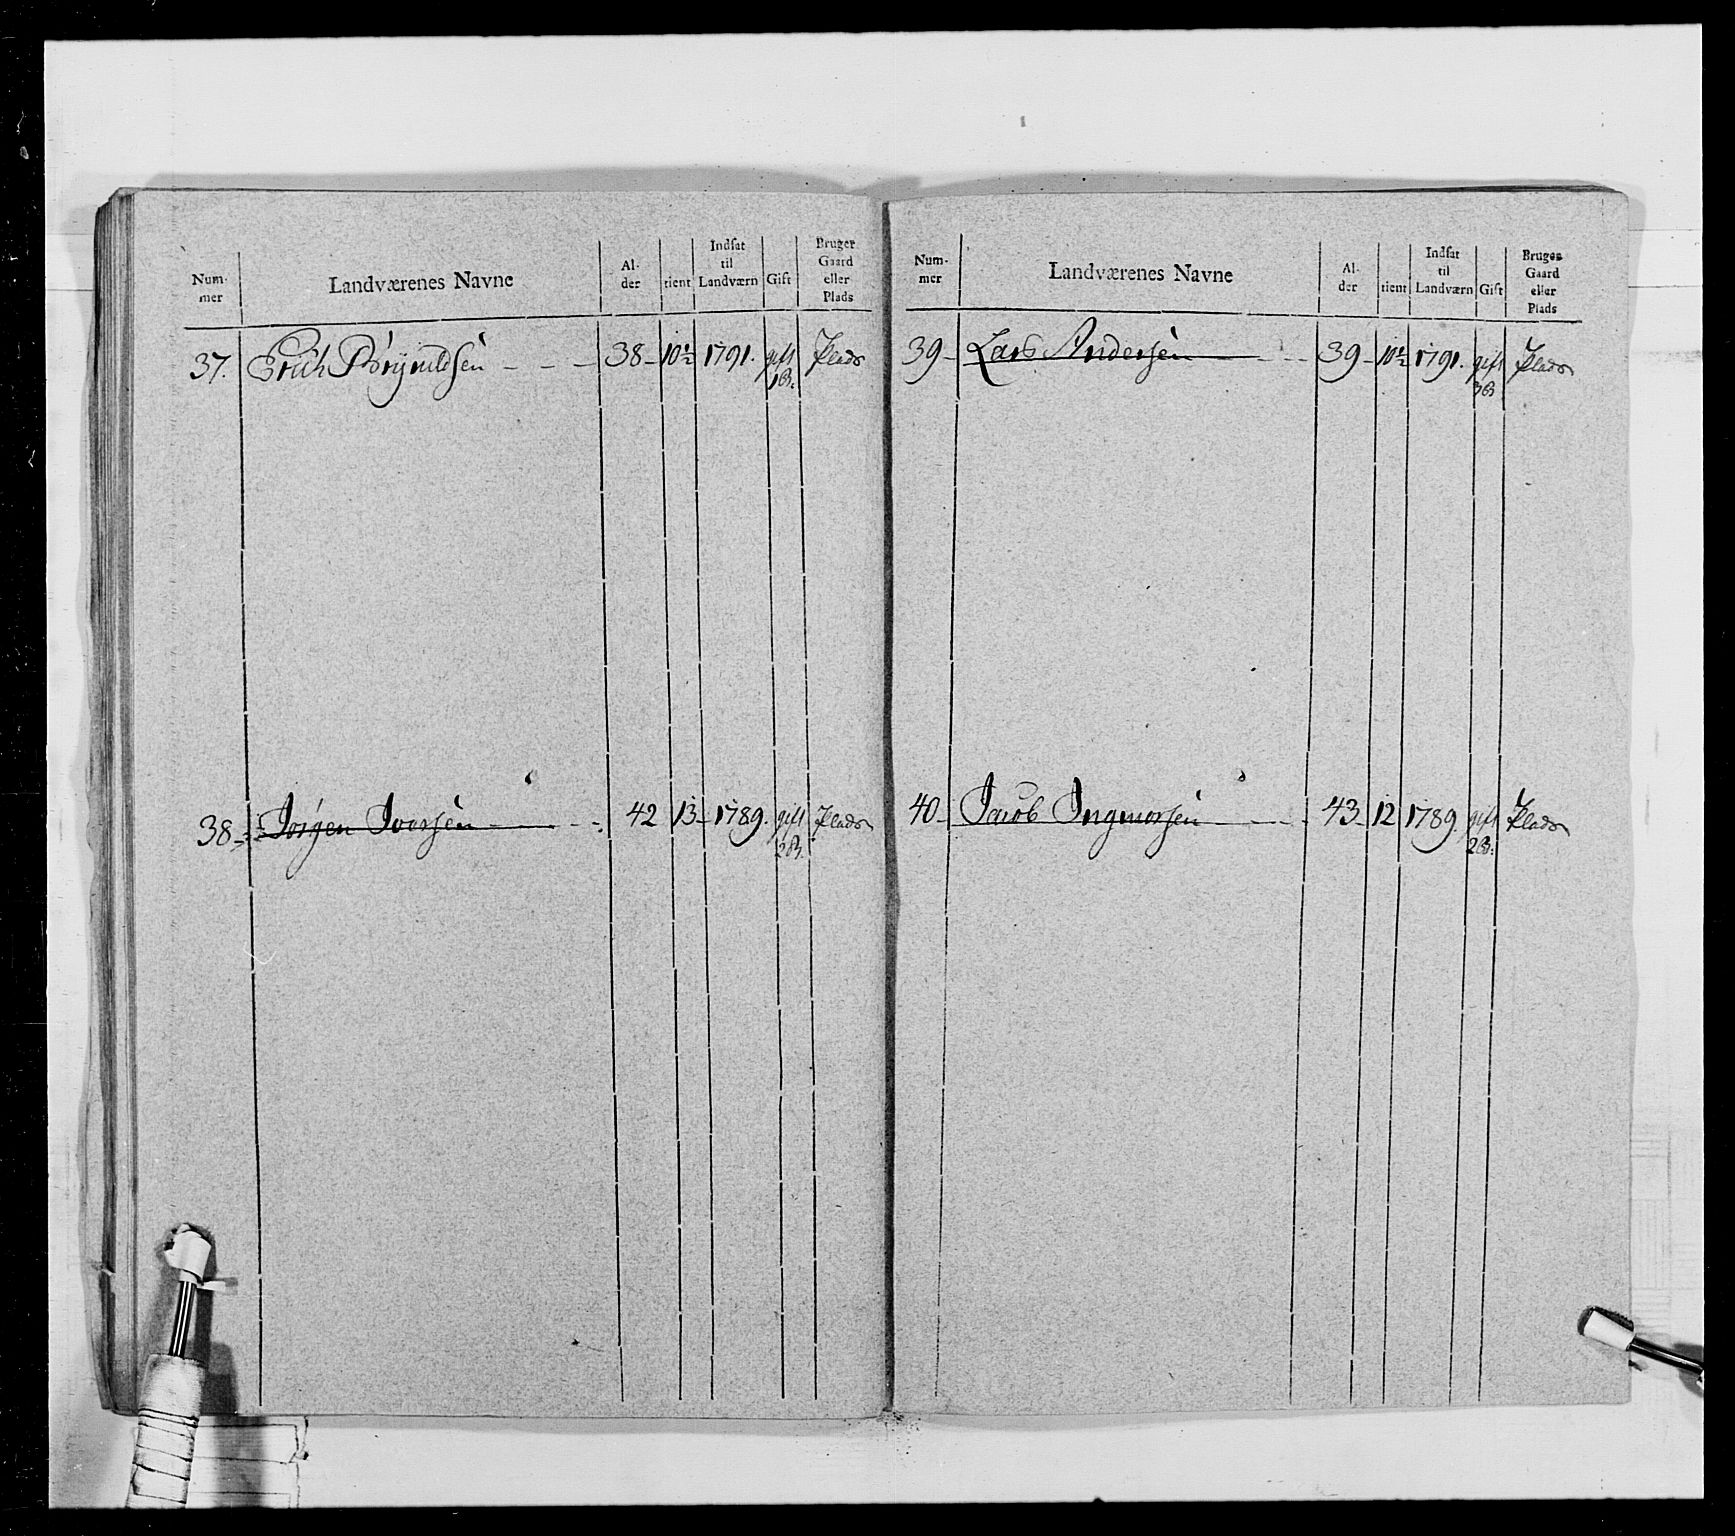 Num- mer Landværenes Navne Al- der tient Indsat til Landværn Gift Bruger Gaard eller Plads
37. Erich Brynildsen - - - 38 - 10½ 1791. gift 1B: Plads
38 - Jørgen Iversen 42 13 - 1789. gift 2B. Plads
Num- mer Landværenes Navne Al- der tient Indsat til Landværn Gift Bruger Gaard eller Plads
39 - Lars Andersen 39 - 10½ 1791. gift 3B Plads
40 - Jacob Ingmorsen 43 12 1789. gift 2B: Plads